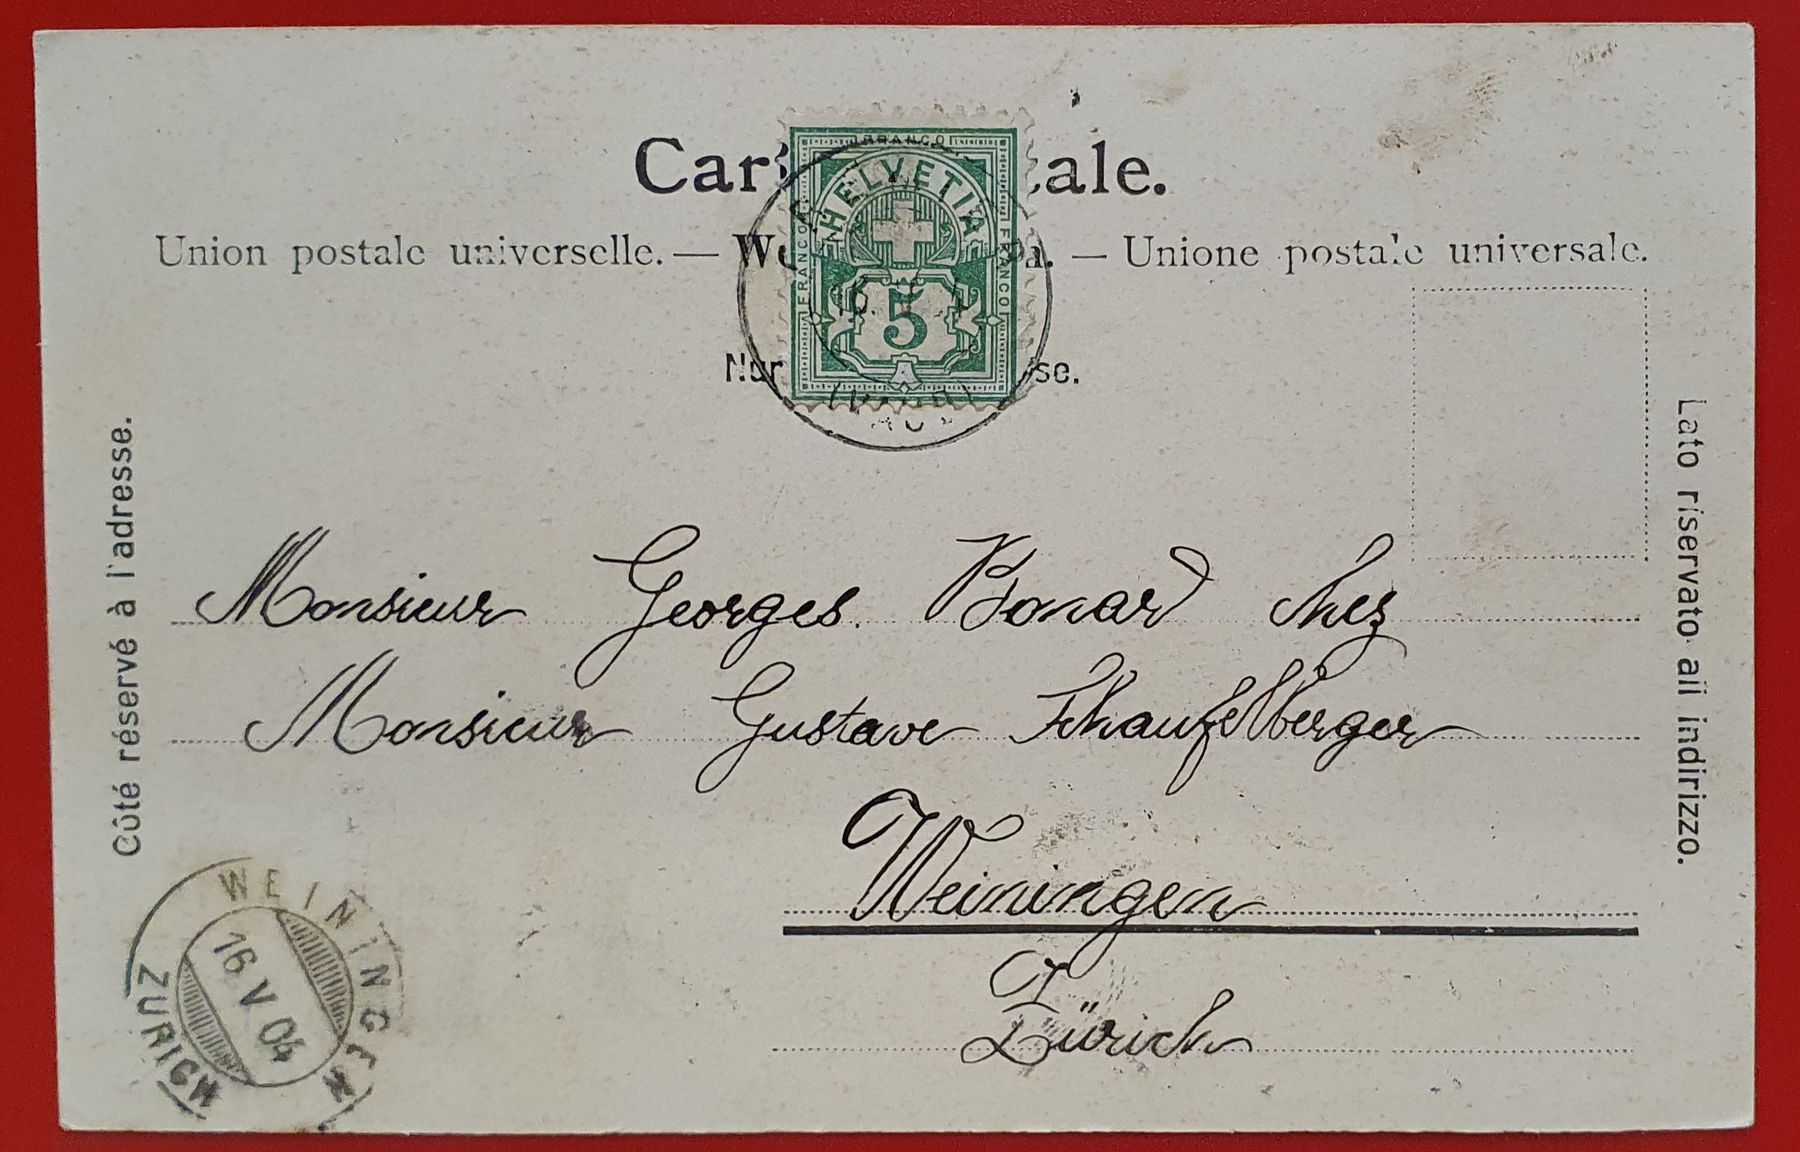 Car ale.
Union postale universelle. — We n. — Unione postale universale.
FRANCO
HELVETIA
FRANCO
FRANCO
5
Nur se.
(VAUD)
Côté réservé à l'adresse.
Lato riservato aii indirizzo.
Monsieur Georges Bonard chez
Monsieur Gustave Schaufelberger
Weiningen
Zürich
WEININGEN
16 V 04
ZÜRICH